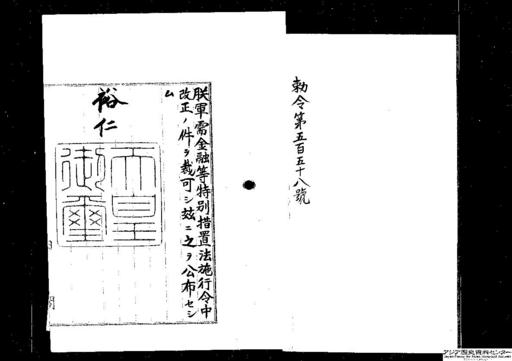 勅令第五百五十八號
朕軍需金融等特別措置法施行令中
改正ノ件ヲ裁可シ玆ニ之ヲ公布セシ
ム
裕仁
天皇
御璽
アジア歴史資料センター